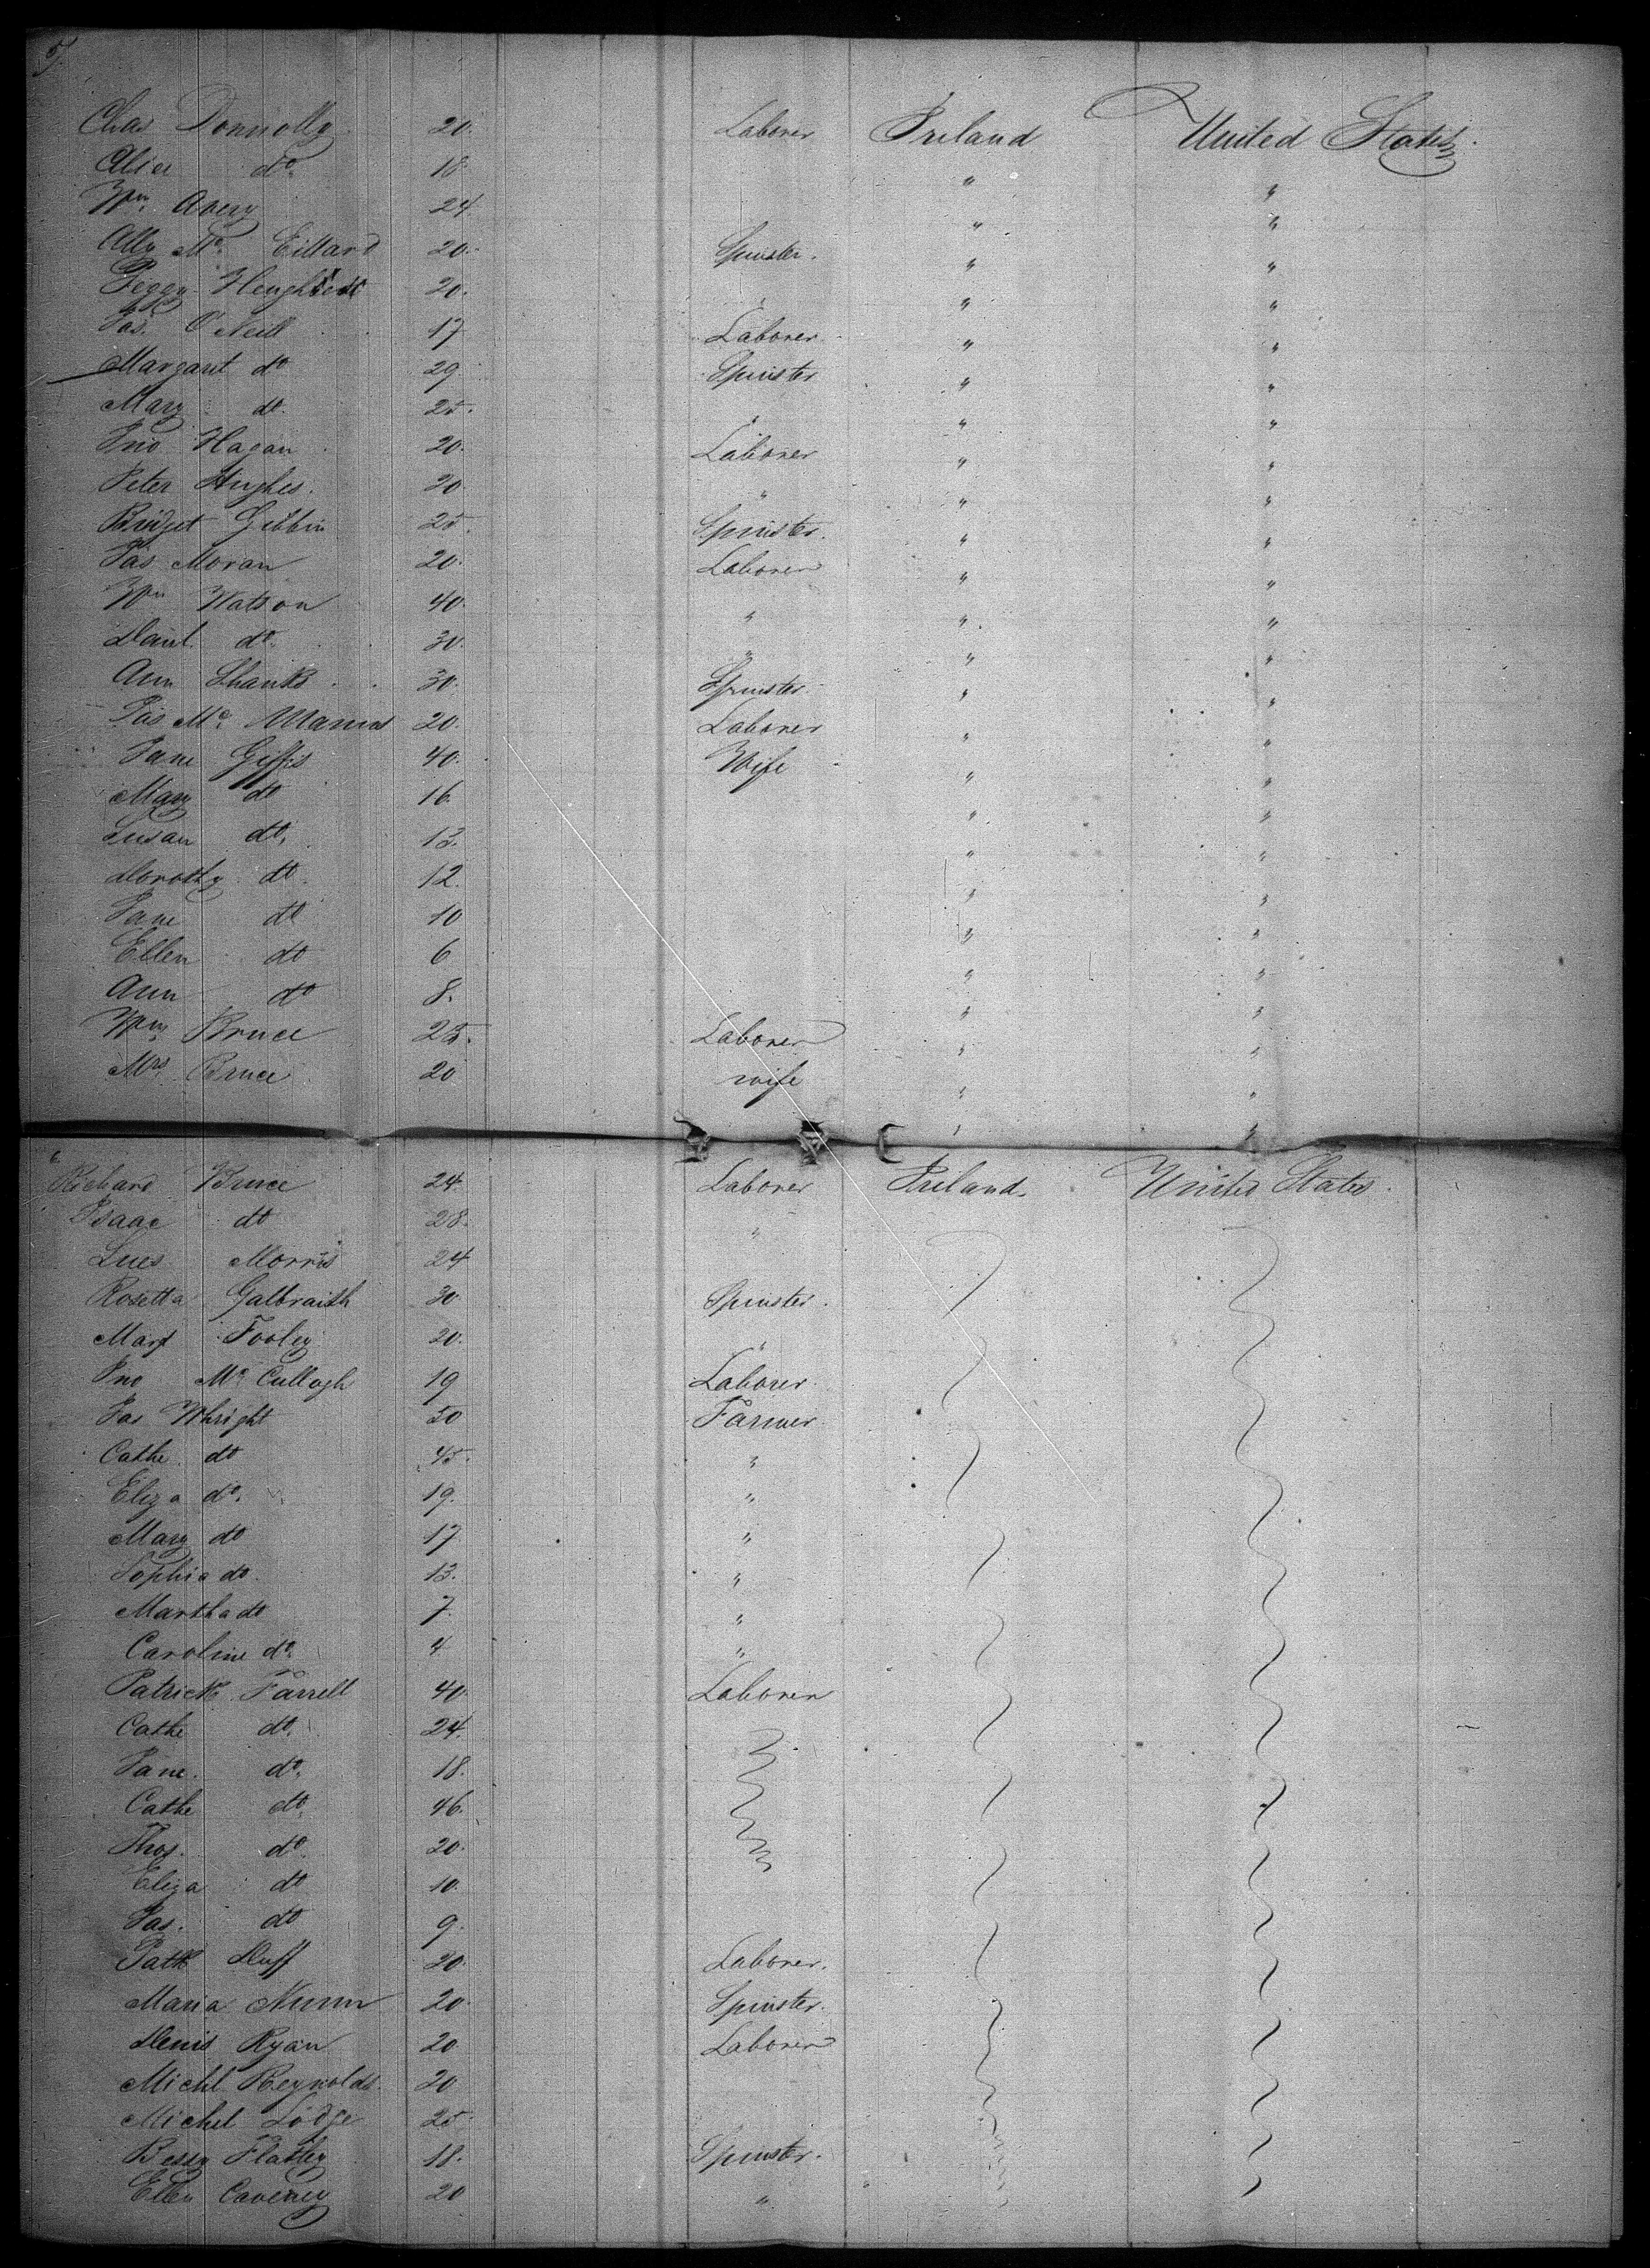 5
Chas Donnolly 20. Laborer Ireland United States.
Alice do. 18. " "
Wm. Avery 24. " "
Ally Mc. 20. Spinster. " "
Peggy 20. " " "
Jas. O'Neill 17 Laborer " "
Margaret do 29. Spinster " "
Mary do. 25. " " "
Jno Hagan 20. Laborer " "
Peter Hughes. 20 " " "
Bridget Gibbin 25. Spinster. " "
Jas Moran 20. Laborer " "
Wm Watson 40. " " "
Danl. do. 30. " " "
Ann Shanks 30. Spinster. " "
Jas Mc. Manus 20. Laborer " "
Jane Giffis 40. Wife " "
Mary do 16. " "
Susan do. 13. " "
Dorothy do. 12. " "
Jane do 10 " "
Ellen do 6 " "
Ann do 8. " "
Wm. Bruce 25. Laborer " "
Mrs. Bruce 20 wife " "
6
Richard Bruce 24. Laborer Ireland. United States.
Isaac do 28. "
Morris 24
Rosetta Galbraith 30. Spinster.
Mary Fooley 20. "
Jno Mc. Cullogh 19 Laborer.
Jas Whright 50 Farmer.
Cathe. do 45. "
Eliza do. 19. "
Mary do 17 "
Sophia do. 13. "
Martha do 7. "
Caroline do. 4 "
Patrick Farrell 40. Laborer
Cathe do. 24.
Jane. do. 18.
Cathe do. 46.
Thos. do. 20.
Eliza do 10.
Jas. do 9.
Patk Duff 20. Laborer.
Maria Nunn 20. Spinster.
Denis Ryan 20 Laborer
Michl. Reynolds. 20
Michel Lodge 25.
Bessy Flatley 18. Spinster.
Ellen Caveney 20 "